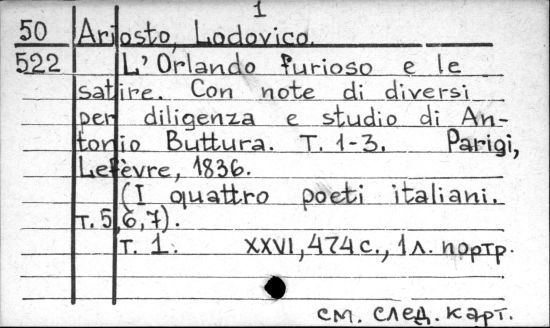 1
50 Ariosto, Lodovico.
522 L'Orlando furioso e le
satire. Con note di diversi
per diligenza e studio di An-
tonio Buttura. T. 1-3. Parigi,
Lefèvre, 1836.
(I quattro poeti italiani.
т. 5,6,7).
т. 1. XXVI, 474 с., 1 л. портр.
см. след. карт.